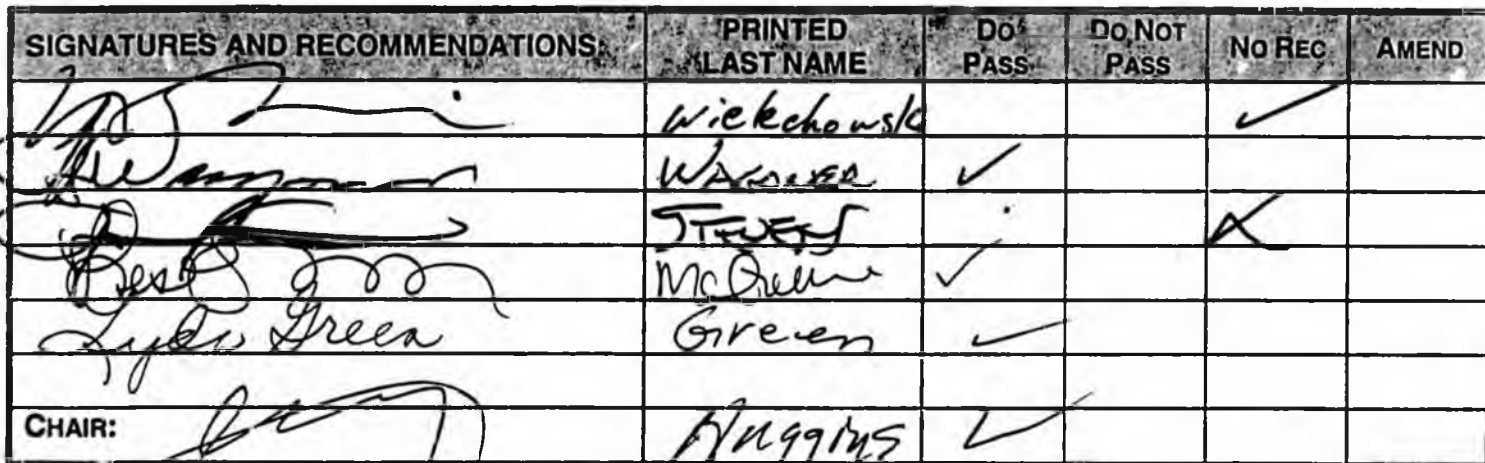 SIGNATURES AND RECOMMENDATIONS: PRINTED LAST NAME DO PASS DO NOT PASS NO REC AMEND
Wielechowski ✓
WAGONER ✓
STEVENS X
McGuire ✓
Lyda Green Green ✓
CHAIR: Huggins ✓